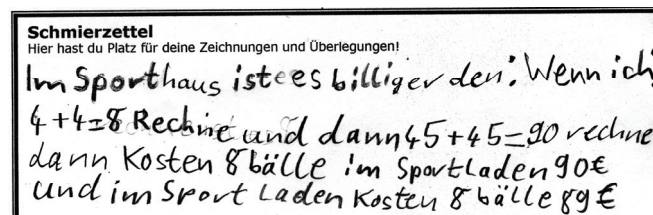 Schmierzettel
Hier hast du Platz für deine Zeichnungen und Überlegungen!
Im Sporthaus ist es billiger den: Wenn ich
4+4=8 Rechne und dann 45+45=90 rechne
dann Kosten 8 bälle im Sportladen 90€
und im Sport Laden Kosten 8 bälle 89€